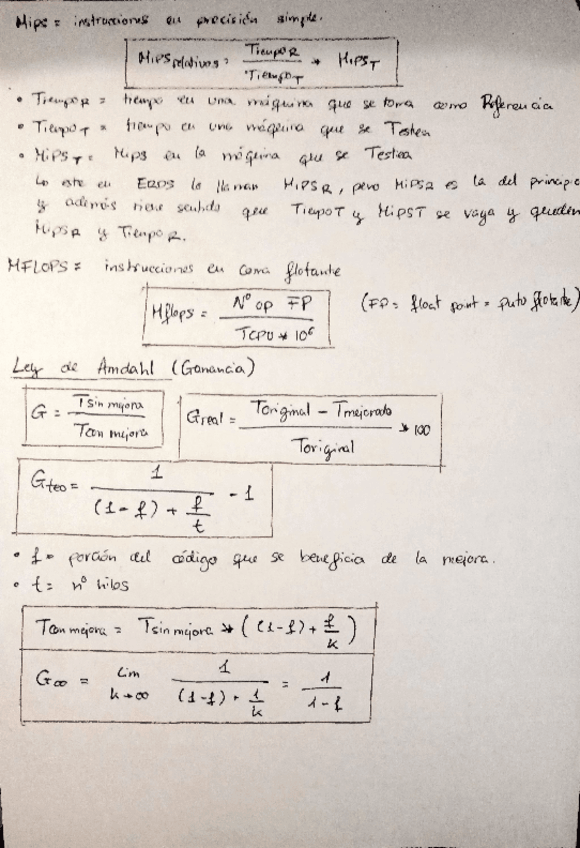 Mips = instrucciones en precisión simple.
MIPS relativos = TiempoR / TiempoT * MIPS_T
• TiempoR = tiempo en una máquina que se toma como Referencia
• TiempoT = tiempo en una máquina que se Testea
• MIPS_T = Mips en la máquina que se Testea
lo este en EROS lo llaman MIPS_R, pero MIPS_R es la del principio
y además tiene sentido que TiempoT y MIPST se vaya y queden
MIPS_R y TiempoR.
MFLOPS = instrucciones en coma flotante
Mflops = Nº op FP / TCPU * 10^6 (FP = float point = puto flotante)
Ley de Amdahl (Ganancia)
G = Tsin mejora / Tcon mejora Greal = Toriginal - Tmejorado / Toriginal * 100
Gteo = 1 / (1-f) + f/t - 1
• f = porción del código que se beneficia de la mejora.
• t = nº hilos
Tcon mejora = Tsin mejora * ((1-f) + f/k)
G∞ = Lim k→∞ 1 / (1-f) + 1/k = 1 / 1-f